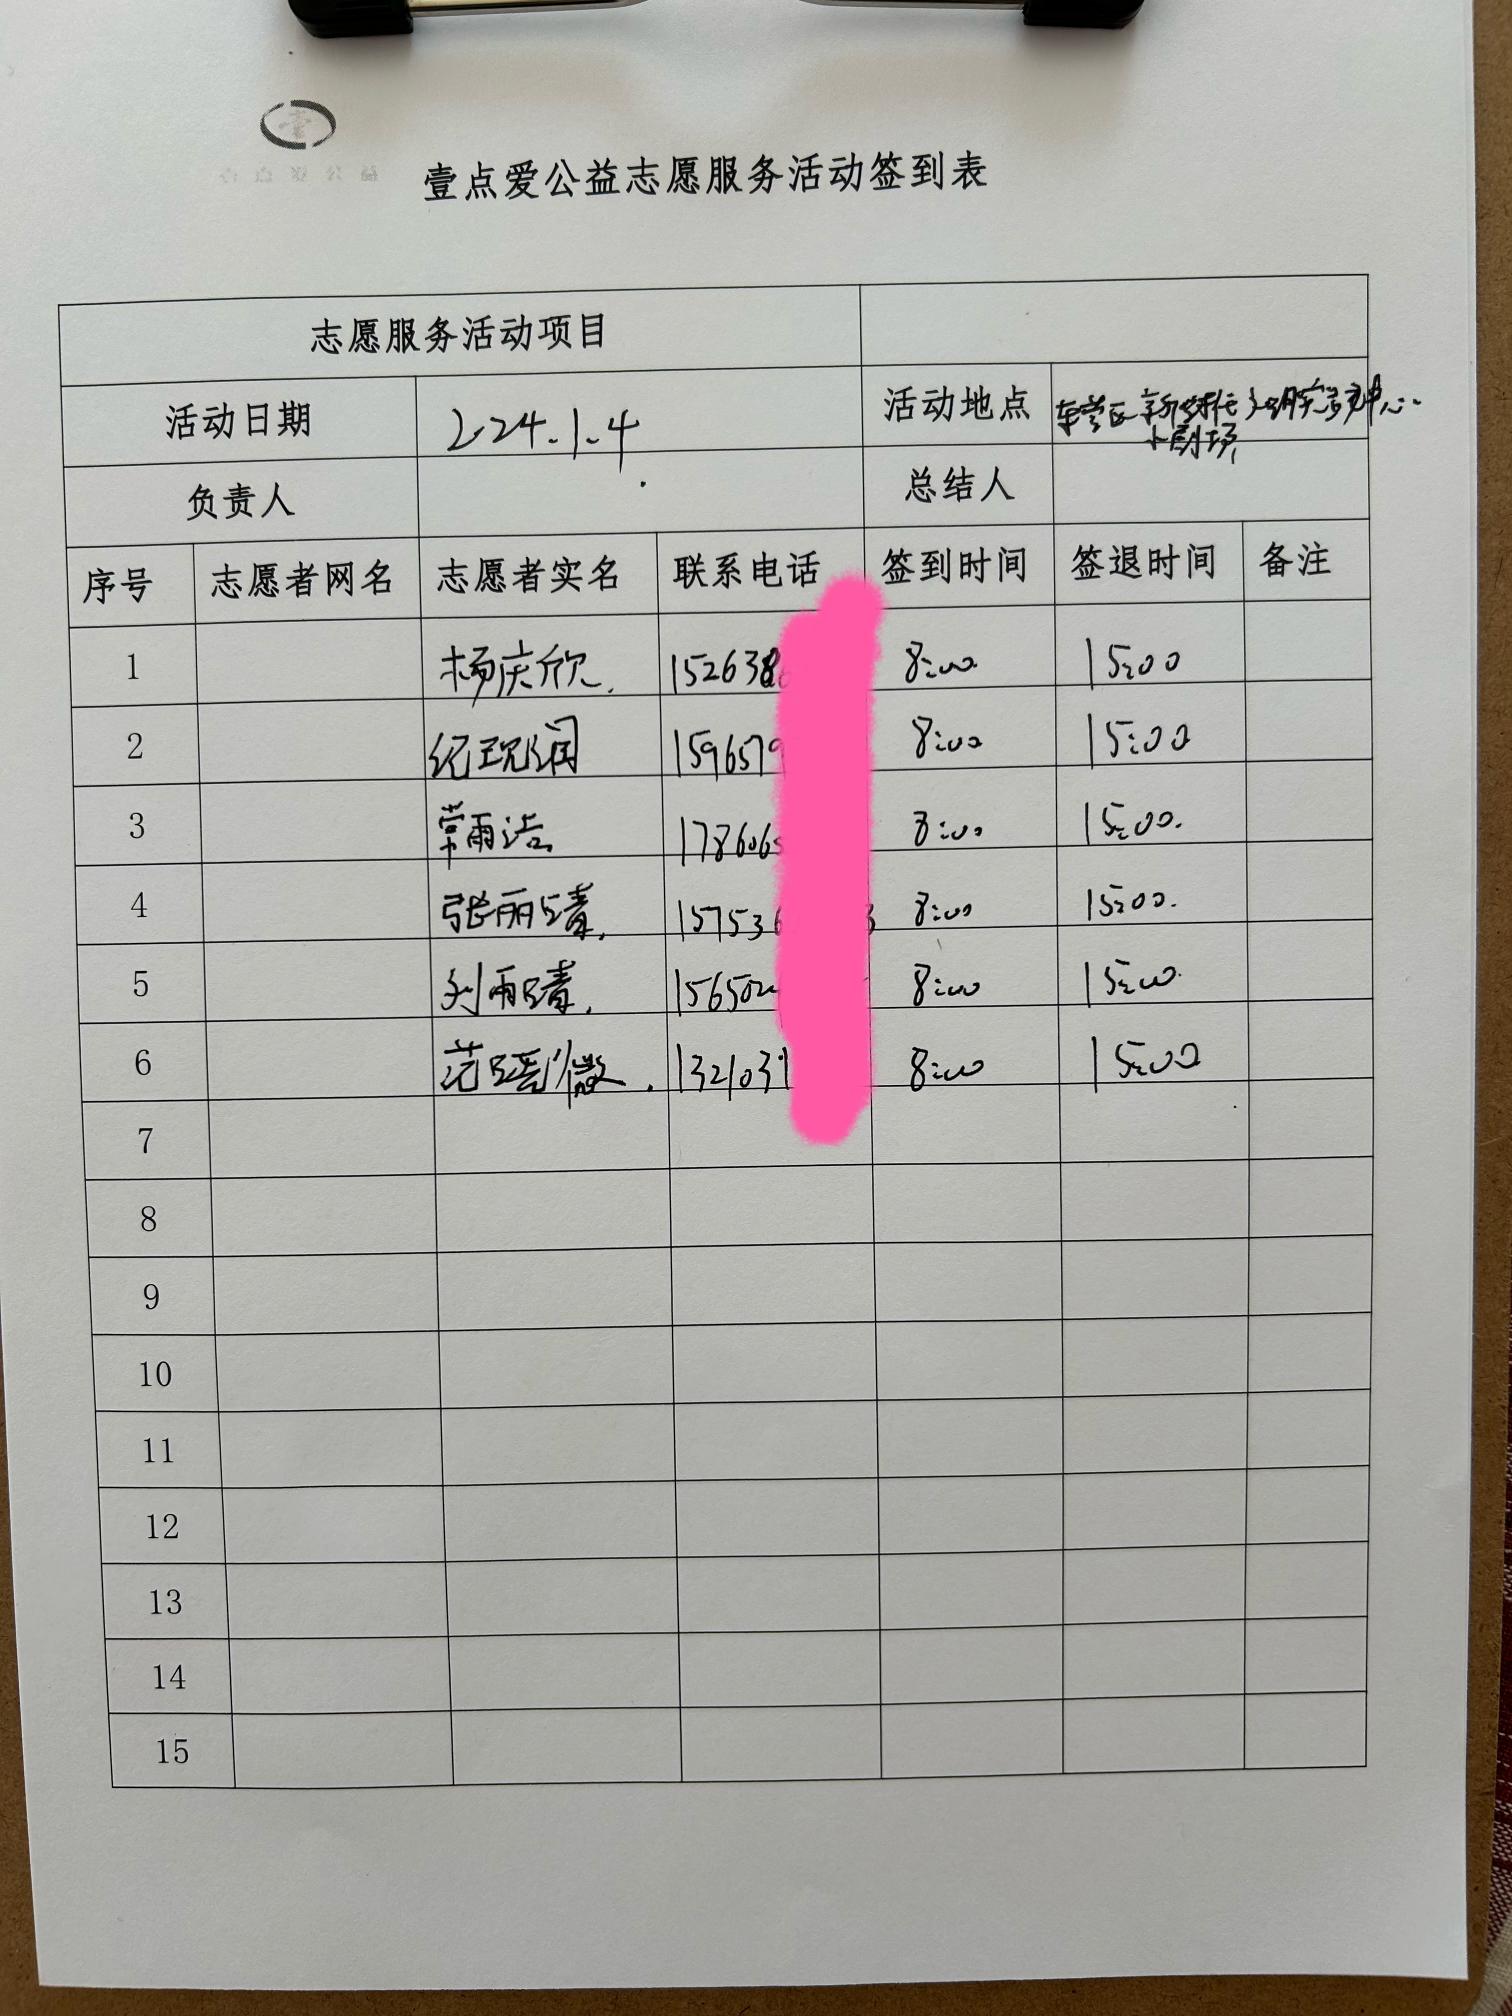 壹点爱公益志愿服务活动签到表
志愿服务活动项目
活动日期 2024.1.4 活动地点 东营区新时代文明实践中心
小剧场
负责人 总结人
序号 志愿者网名 志愿者实名 联系电话 签到时间 签退时间 备注
1 杨庆欣. 152638 8:00 15:00
2 纪现润 159657 8:00 15:00
3 常雨洁 178606 8:00 15:00.
4 张丽晴. 157536 3 8:00 15:00.
5 刘雨晴. 15650 8:00 15:00.
6 范瑶微. 132103 8:00 15:00
7
8
9
10
11
12
13
14
15